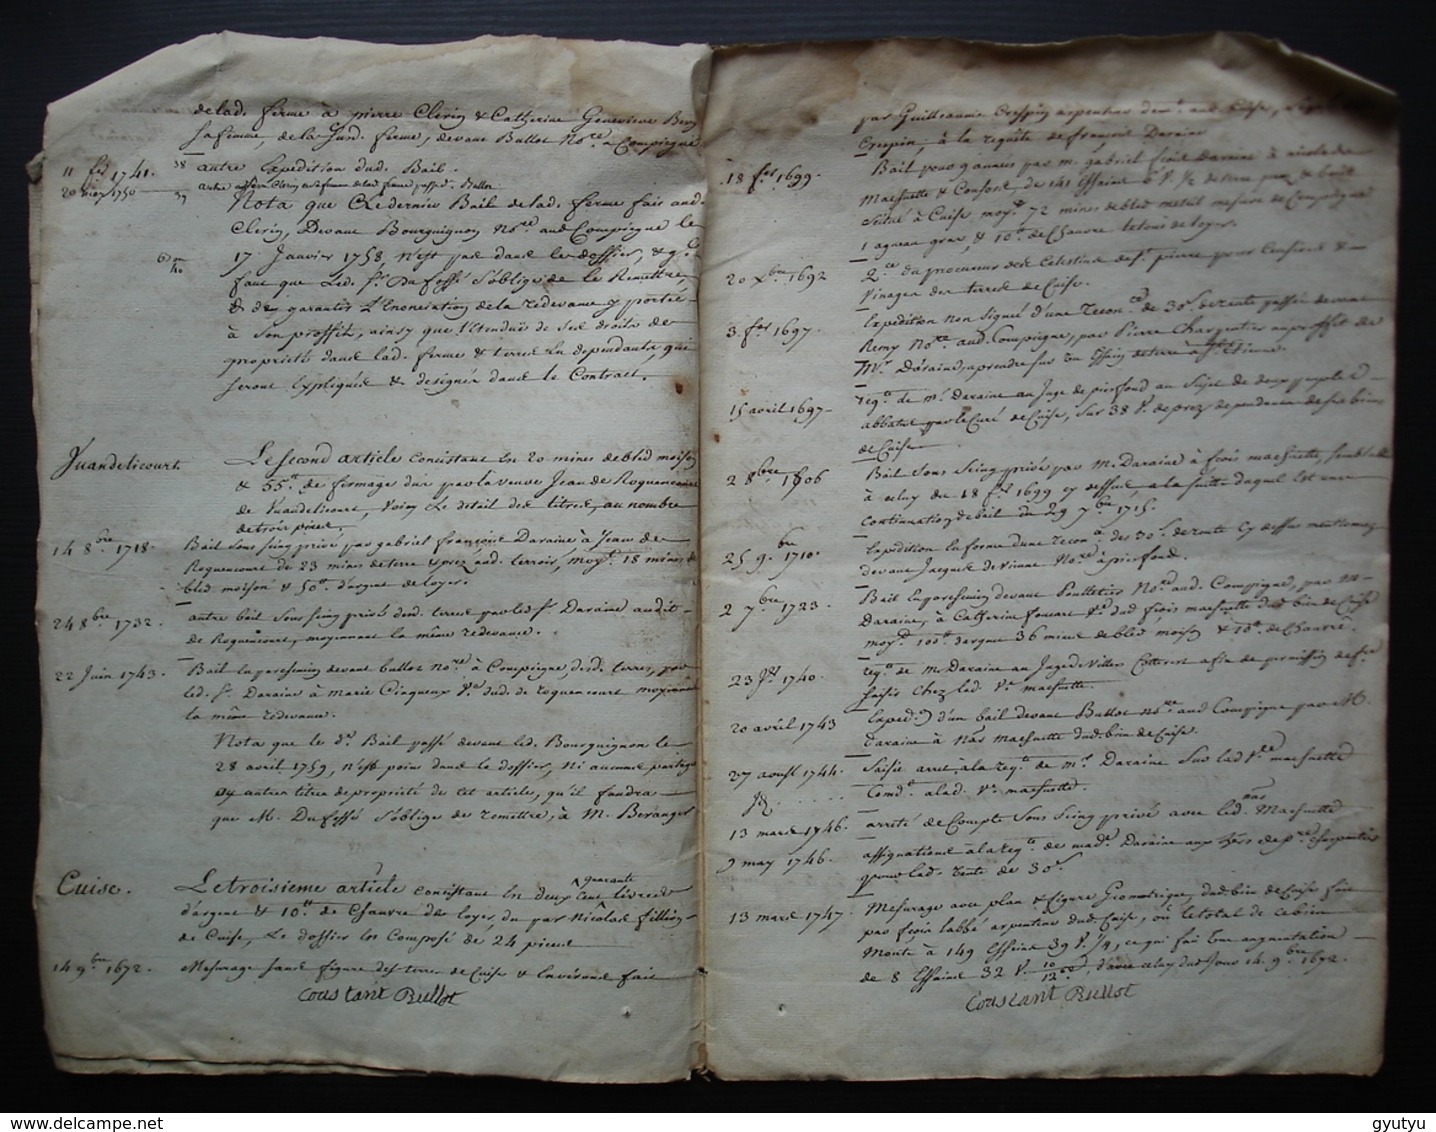 delad. ferme à pierre Clerin & Catherine Genevieve Beny
sa femme, de la Jurd. ferme, devant Bullot No.re a Compiegne
11 fev. 1741. 38 autre Expedition dud. Bail.
20 1750 39 autre Clerin et sa femme delad. ferme passé d. Bullot
Nota que Le dernier Bail delad. ferme fait aud.
Clerin, Devant Bourguignon No.re aud. Compiegne le
40 17 Janvier 1758 n'est pas dans le dossier, &
faut que led. S.r Du fossé s'oblige de le Remettre,
& de garantir L'Enonciation de la redevance y portée
à son proffit, ainsy que l'Etendüe de ses droits de
proprieté dans lad. ferme & terres en dependante, qui
seront Expliquée & designée dans le Contract.
Vuandelicourt Le Second article consistant en 20 mines de bled moison
& 55.tt de fermage dux par la veuve Jean de Roquencourt
de Vuandelicourt, Voicy Le detail des titres, au nombre
de trois pieces.
14 8.bre 1718. Bail sous seing privé par gabriel françois Daraine à Jean de
Roquencourt de 23 mines de terre & prez aud. terroir, moy.t 18 mines de
bled moison & 50.tt d'argent de loyer.
24 8.bre 1732. autre bail sous seing privé desd. terres par led. S.r Daraine audit
de Roquencourt, moyennant la même redevance.
22 Juin 1743. Bail en parchemin devant bullot No.re à Compiegne, desd. terres, par
led. S.r Daraine à Marie Cinqueux V.ve dud. de roquencourt moyennant
la même redevance.
Nota que le d. Bail passé devant led. Bourguignon le
28 avril 1759, n'est point dans le dossier, ni aucunes partages
oy autres titres de proprieté de cet articles, qu'il faudra
que M. Du fossé s'oblige de remettre, à M. Beranger
Cuise. Le troisieme article consistant en deux Cent quarante livres
d'argent & 10.tt de Chanvre de loyer, du par Nicolas fillion
de Cuise, Le dossier en Composé de 24 pieces
14 9.bre 1672. Mesurage sans figure des terres de Cuise & Environs fait
Coustant Bullot
par Guillaume Crespin arpenteur dem.t aud. Cuise,
Crespin, à la requête de françois Daraine
18 f.er 1699. Bail pour 9 années par M. gabriel fçois Daraine à nicolas
Maehuette & Consort, de 141 Essains 6 V. 1/2 de terre prez & bois
Scitué à Cuise moy.t 72 mines de bled metail mesure de Compiegne
1 agneau gras & 10.tt de Chanvre le tout de loyer.
20 X.bre 1692 q.ce du procureur des Celestins de S.t pierre pour Censives &
Vinages des terres de Cuise.
3. f.er 1697. Expedition non signée d'une recon.ce de 30.s de rente passée devant
Remy No.re aud. Compiegne, par Pierre Charpentier au proffit de
M.r Daraine, aprendre sur un Essain de terre à S.t Etienne.
15 avril 1697. req.te de M. Daraine au Juge de pierfond au sujet de deux peupliers
abbatus par le Curé de Cuise, sur 38 V. de prez dependans de ses biens
de Cuise
28.bre 1706 Bail sous seing privé par M. Daraine à fçois maehuette, semblable
à celuy du 18 f.er 1699 cy dessus, à la suitte duquel est une
continuation de bail du 29 7.bre 1715.
25 9.bre 1710. Expédition en forme d'une recon.ce des 30.s de rente cy dessus mentionnez
devant Jacques de Vienne No.re à pierfond.
2 7.bre 1723. Bail en parchemin devant Poulletier No.re aud. Compiegne, par M.
Daraine, à Catherine fouart V.ve dud. fçois maehuette dud. bien de Cuise
moy.t 100.tt d'argent 36 mines de bled moison & 10.tt de Chanvre.
23 J.et 1740. req.te de M. Daraine au Juge de Villers Cotterest afin de permission de faire
saisir chez lad. V.ve maehuette.
20 avril 1743 Exped.on d'un bail devant Bullot No.re aud. Compiegne par M.
Daraine à Nas Maehuette dud. bien de Cuise.
27 aoust 1744. Saisie arret, à la req.te de M. Daraine Sur lad. V.ve maehuette
Jd. . . . . . Comd.t alad. V.ve maehuette.
13 mars 1746. arrêté de Compte Sous Seing privé avec led. nas Maehuette
9 may 1746. assignation à la req.te de mad.e Daraine aux hers de p.re Charpentier
pour lad. rente de 30.s
13 mars 1747. Mesurage avec plan & figure Geometrique, dud. bien de Cuise fait
par fçois labbé arpenteur dud. Cuise, ou le total de ce bien
Monte à 149 Essains 39 V. 1/4, ce qui fait une augmentation
de 8 Essains 32 V. 10/12, d'avec celuy dud. Jour 14. 9.bre 1672.
Coustant Bullot
gyutyu